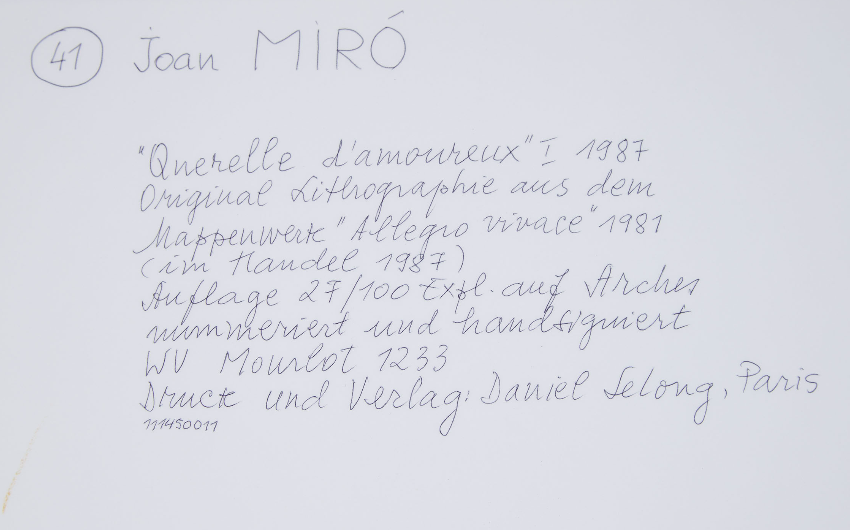 41 Joan MIRÓ
"Querelle d'amoureux" I 1987
Original Lithographie aus dem
Mappenwerk "Allegro vivace" 1981
(im Handel 1987)
Auflage 27/100 Expl. auf Arches
nummeriert und handsigniert
WV Mourlot 1233
Druck und Verlag: Daniel Lelong, Paris
111450011